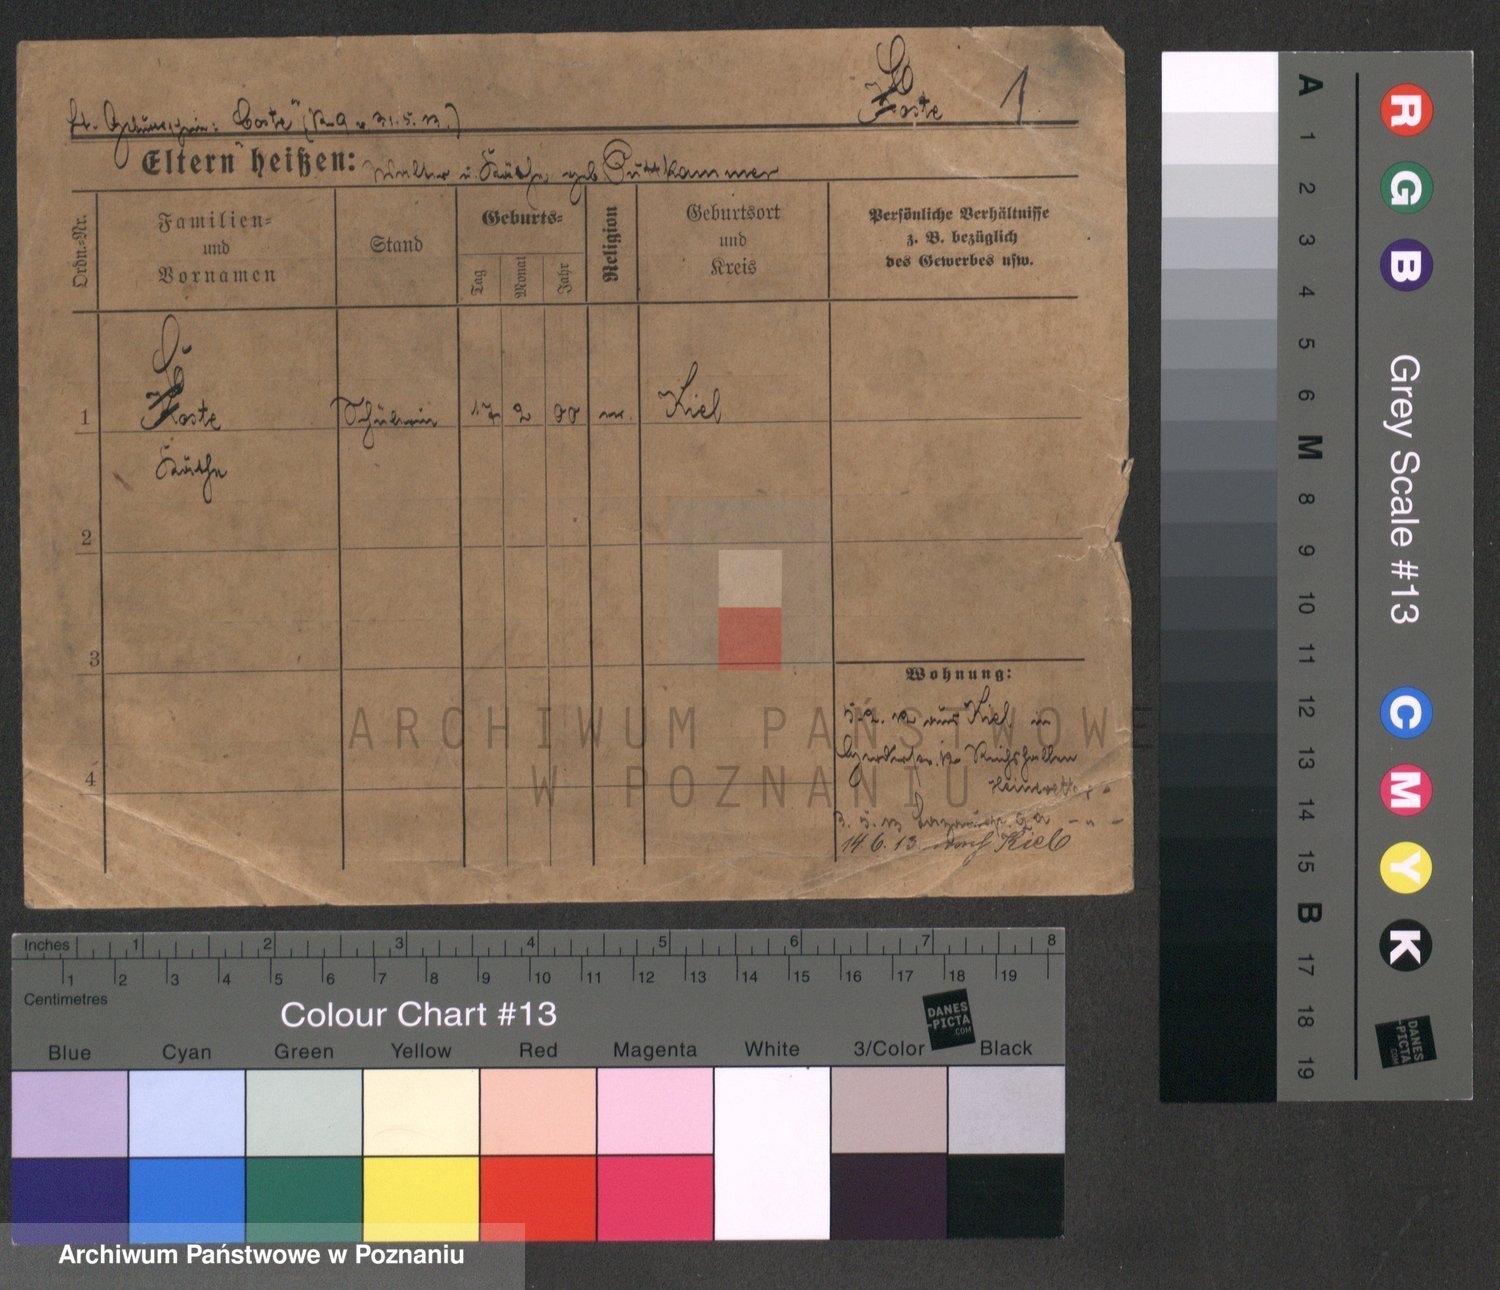 Coste
1
lt. Geburtsschein: "Coste" (K. 9 v. 31.5.13.)
Eltern heißen: Walter u. Käthe geb. Puttkammer
Ordn.-Nr.
Familien-
und
Vornamen
Stand
Geburts-
Tag
Monat
Jahr
Religion
Geburtsort
und
Kreis
Persönliche Verhältnisse
z. B. bezüglich
des Gewerbes usw.
1
Coste
Schülerin
17
2
00
ev.
Kiel
Käthe
2
3
4
Wohnung:
aus Kiel in
14 6. 13 Kiel
ARCHIWUM PAŃSTWOWE
W POZNANIU
A
1
2
3
4
5
6
M
8
9
10
11
12
13
14
15
B
17
18
19
R
G
B
Grey Scale #13
C
M
Y
K
DANES
-PICTA
.COM
Inches 1 2 3 4 5 6 7 8
1 2 3 4 5 6 7 8 9 10 11 12 13 14 15 16 17 18 19
Centimetres
Colour Chart #13
DANES
-PICTA
.COM
Blue Cyan Green Yellow Red Magenta White 3/Color Black
Archiwum Państwowe w Poznaniu